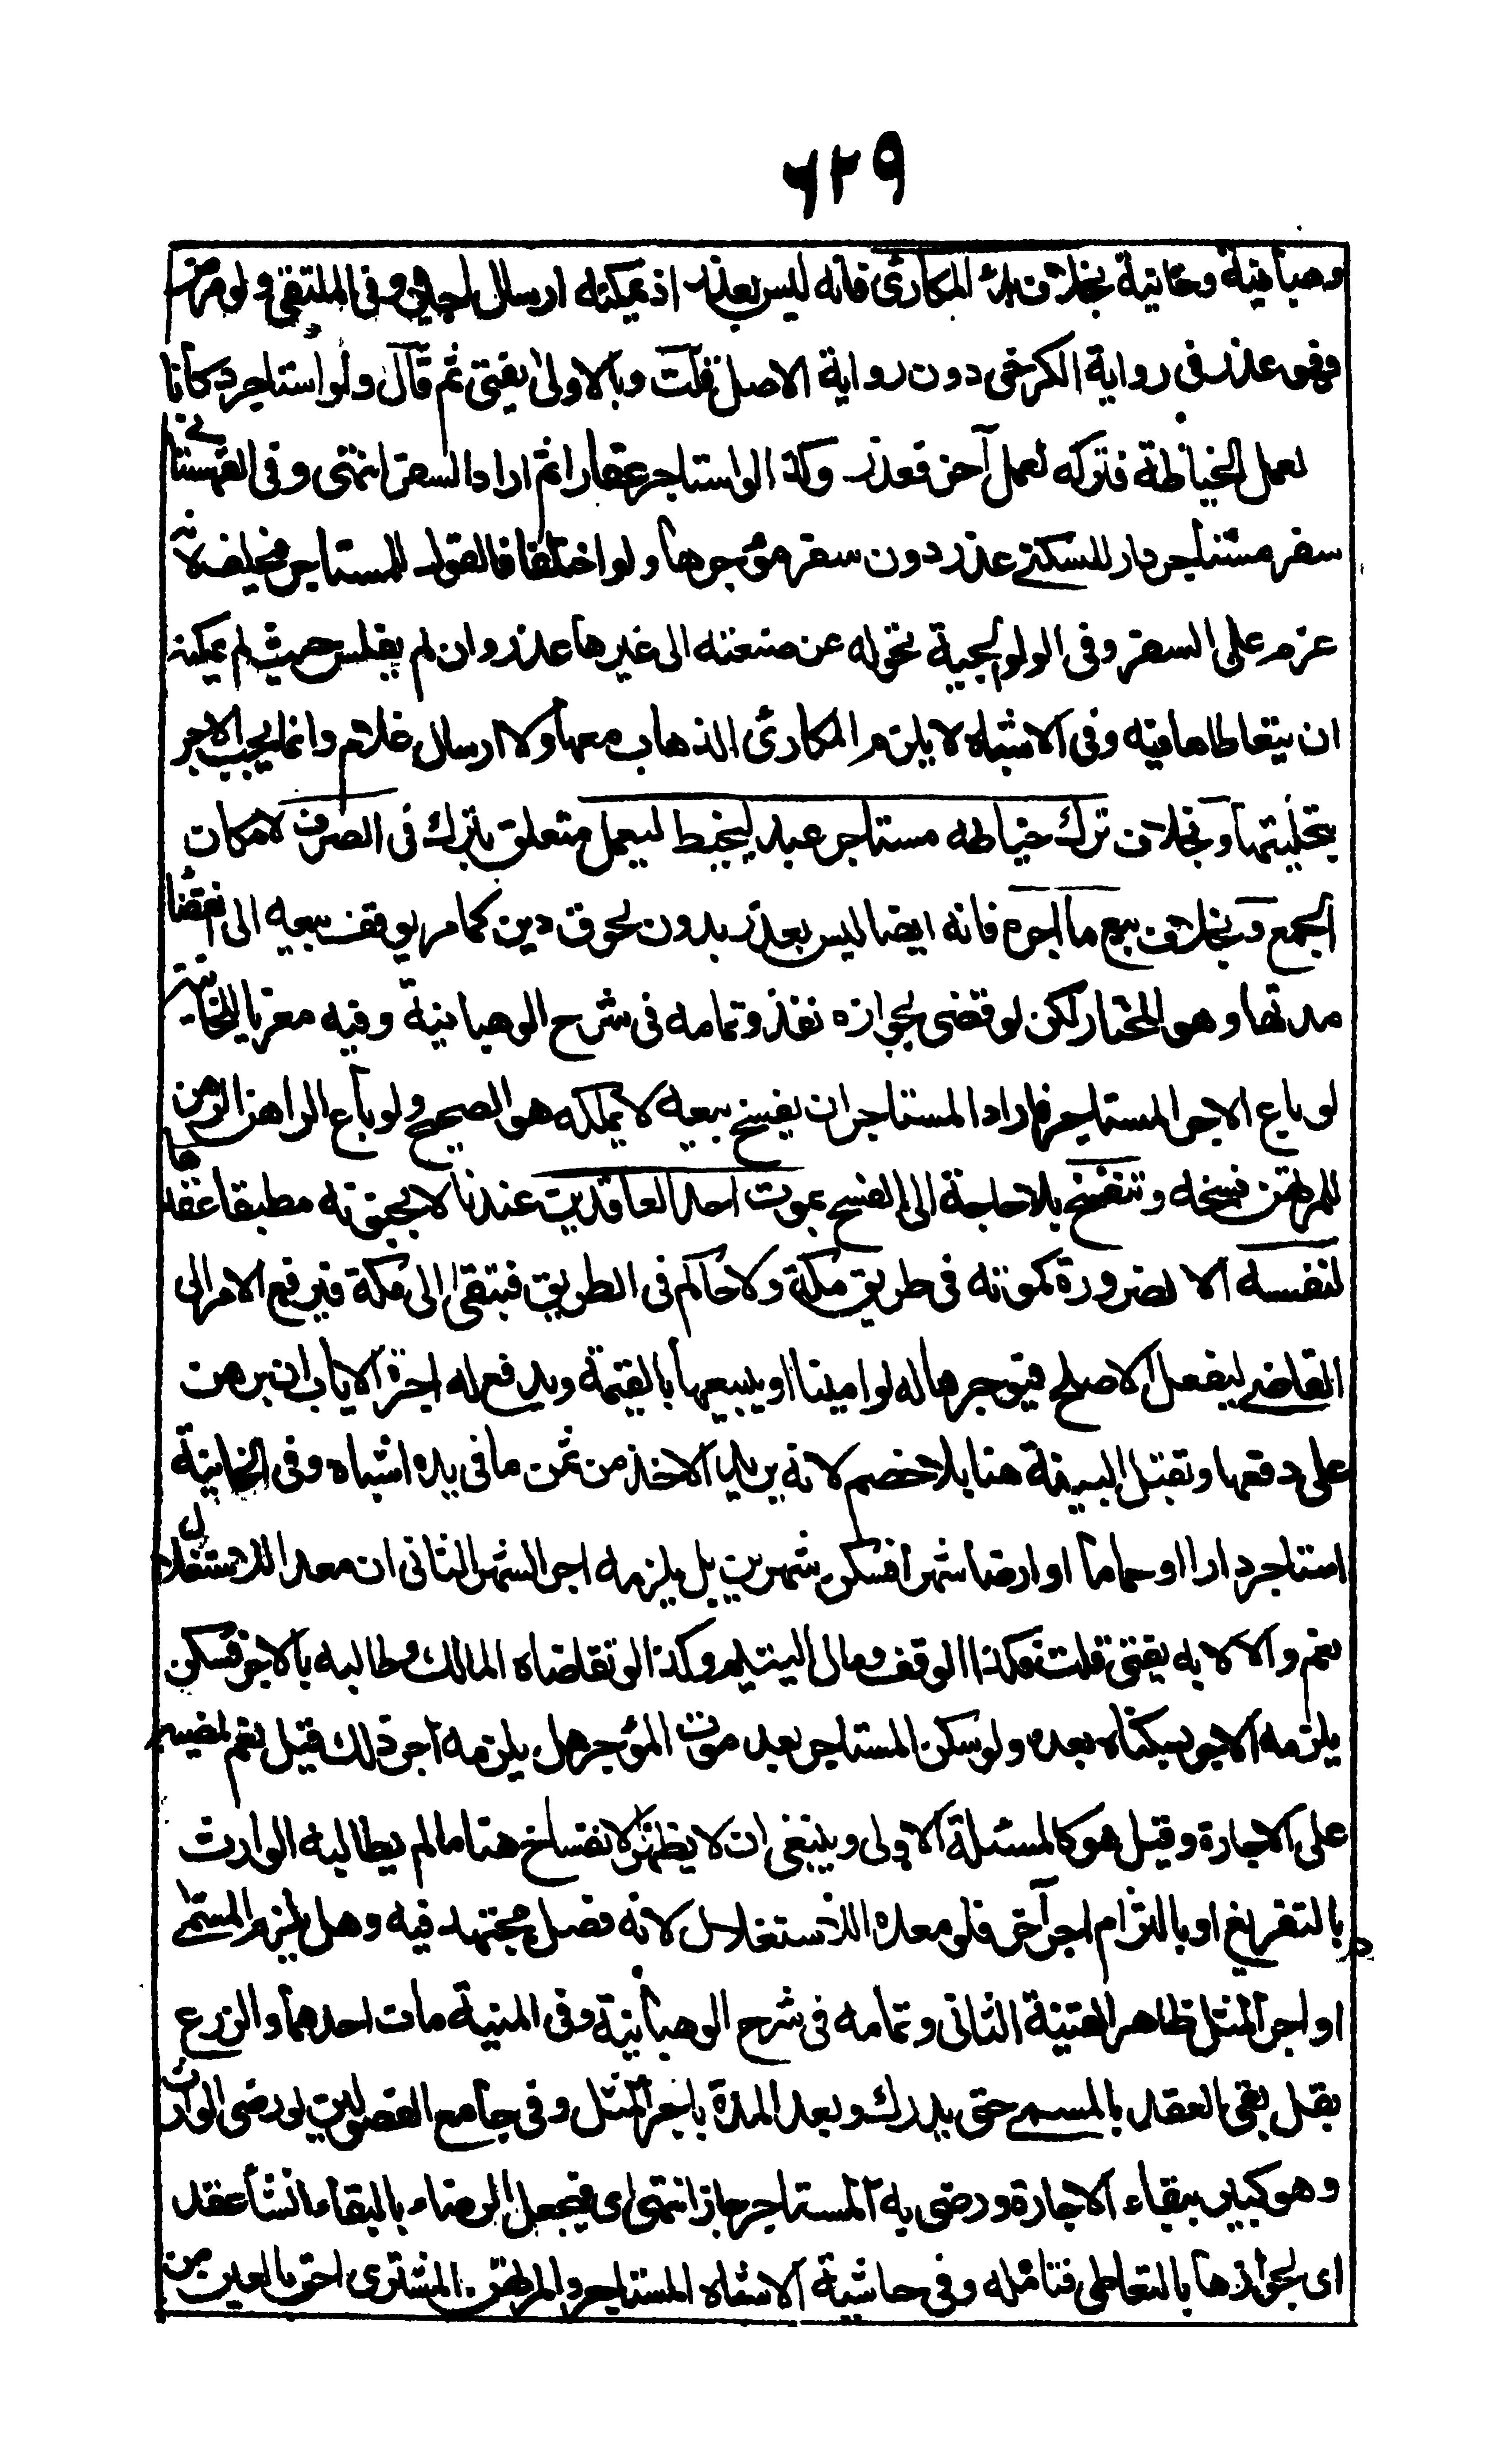 ٦٢٩
وهبانية وخانية بخلاف بداء المكاري فانه ليس بعذر اذ يمكنه ارسال اجيره وفى الملتقى ولو مرض
فهو عذر فى رواية الكرخى دون رواية الاصل قلت وبالاولى يفتى ثم قال ولو استاجر دكانا
لعمل الخياطة فتركه لعمل آخر فعذر وكذا لو استاجر عقارا ثم اراد السفر انتهى وفى القهستانى
سفر مستأجر دار للسكنى عذر دون سفر مؤجرها ولو اختلفا فالقول للمستاجر فيحلف لانه
عزم على السفر وفى الولوالجية تحوله عن صنعته الى غيرها عذر وان لم يفلس حيث لم يمكنه
ان يتعاطاها فيه وفى الاشباه لا يلزم المكارى الذهاب معها ولا ارسال غلام وانما يجب الاجر
بتخليتها وبخلاف ترك خياطه مستاجر عبد ليخيط ليعمل متعلق بترك فى الصرف لامكان
الجمع وبخلاف بيع ما اجره فانه ايضا ليس بعذر بدون لحوق دين كما مر يوقف بيعه الى انقضا
مدتها وهو المختار لكن لو قضى بجوازه نفذ وتمامه فى شرح الوهبانية وفيه معزيا للخانية
لو باع الاجر المستاجر فاراد المستاجر ان يفسخ بيعه لا يملكه هو الصحيح ولو باع الراهن الرهن
للمرتهن فسخه وتنفسخ بلا حاجة الى الفسخ بموت احد العاقدين عندنا لا بجنونه مطبقا عقدها
لنفسه الا لضرورة كموته فى طريق مكة ولا حاكم فى الطريق فتبقى الى مكة فيرفع الامر الى
القاضى ليفعل الاصلح فيؤجرها له لو امينا او يبيعها بالقيمة ويدفع له اجرة الاياب ان برهن
على دفعها وتقبل البينة هنا بلا خصم لانه يريد الاخذ من ثمن ما فى يده اشباه وفى الخانية
استاجر دارا او حماما او ارضا شهرا فسكن شهرين بل يلزمه اجر الشهر الثانى ان معدا للاستغلال
نعم والا لا به يفتى قلت فكذا الوقف ومال اليتيم وكذا لو تقاضاه المالك وطالبه بالاجر فسكن
يلزمه الاجر بسكناه بعده ولو سكن المستاجر بعد موت المؤجر هل يلزمه اجر ذلك قيل نعم لمضيه
على الاجارة وقيل هو كالمسئلة الاولى وينبغى ان لا يظهر الانفساخ هنا ما لم يطالبه الوارث
بالتفريغ او بالتزام اجر آخر فلو معدا للاستغلال لانه فصل مجتهد فيه وهل يلزم المسمى
او اجر المثل ظاهر القنية الثانى وتمامه فى شرح الوهبانية وفى المنية مات احدهما والزرع
بقل بقى العقد بالمسمى حتى يدرك وبعد المدة باجر المثل وفى جامع الفصولين لو رضى الوارث
وهو كبير ببقاء الاجارة ورضى به المستاجر جاز انتهى اى فيجعل الرضاء بالبقاء انشا عقد
اى لجوازها بالتعاطى فتامله وفى حاشية الاشباه المستاجر والمرتهن والمشترى احق بالعين من